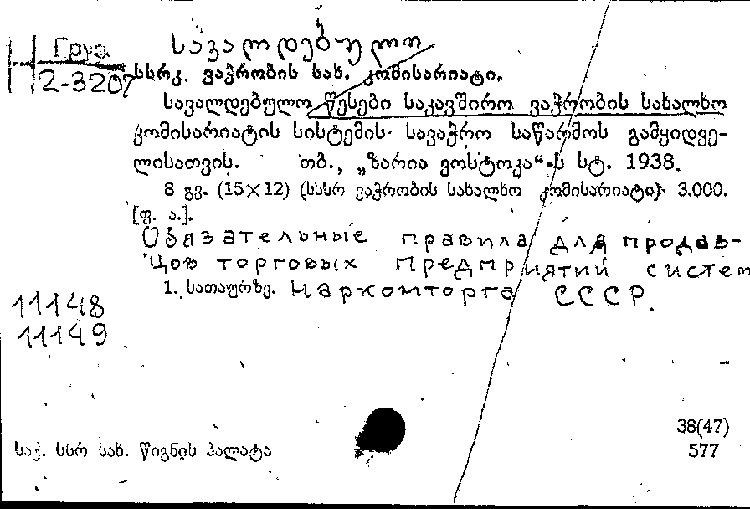 Н Груз. სავალდებულო
2-3207 სსრკ. ვაჭრობის სახ. კომისარიატი.
სავალდებულო წესები საკავშირო ვაჭრობის სახალხო
კომისარიატის სისტემის სავაჭრო საწარმოს გამყიდვე-
ლისათვის. თბ., „ზარია ვოსტოკა“-ს სტ. 1938.
8 გვ. (15×12) (სსსრ ვაჭრობის სახალხო კომისარიატი). 3.000.
[ფ. ა.].
Обязательные правила для продав-
цов торговых предприятий систем
1. სათაურზე. Наркомторга СССР.
11148
11149
38(47)
საქ. სსრ სახ. წიგნის პალატა 577